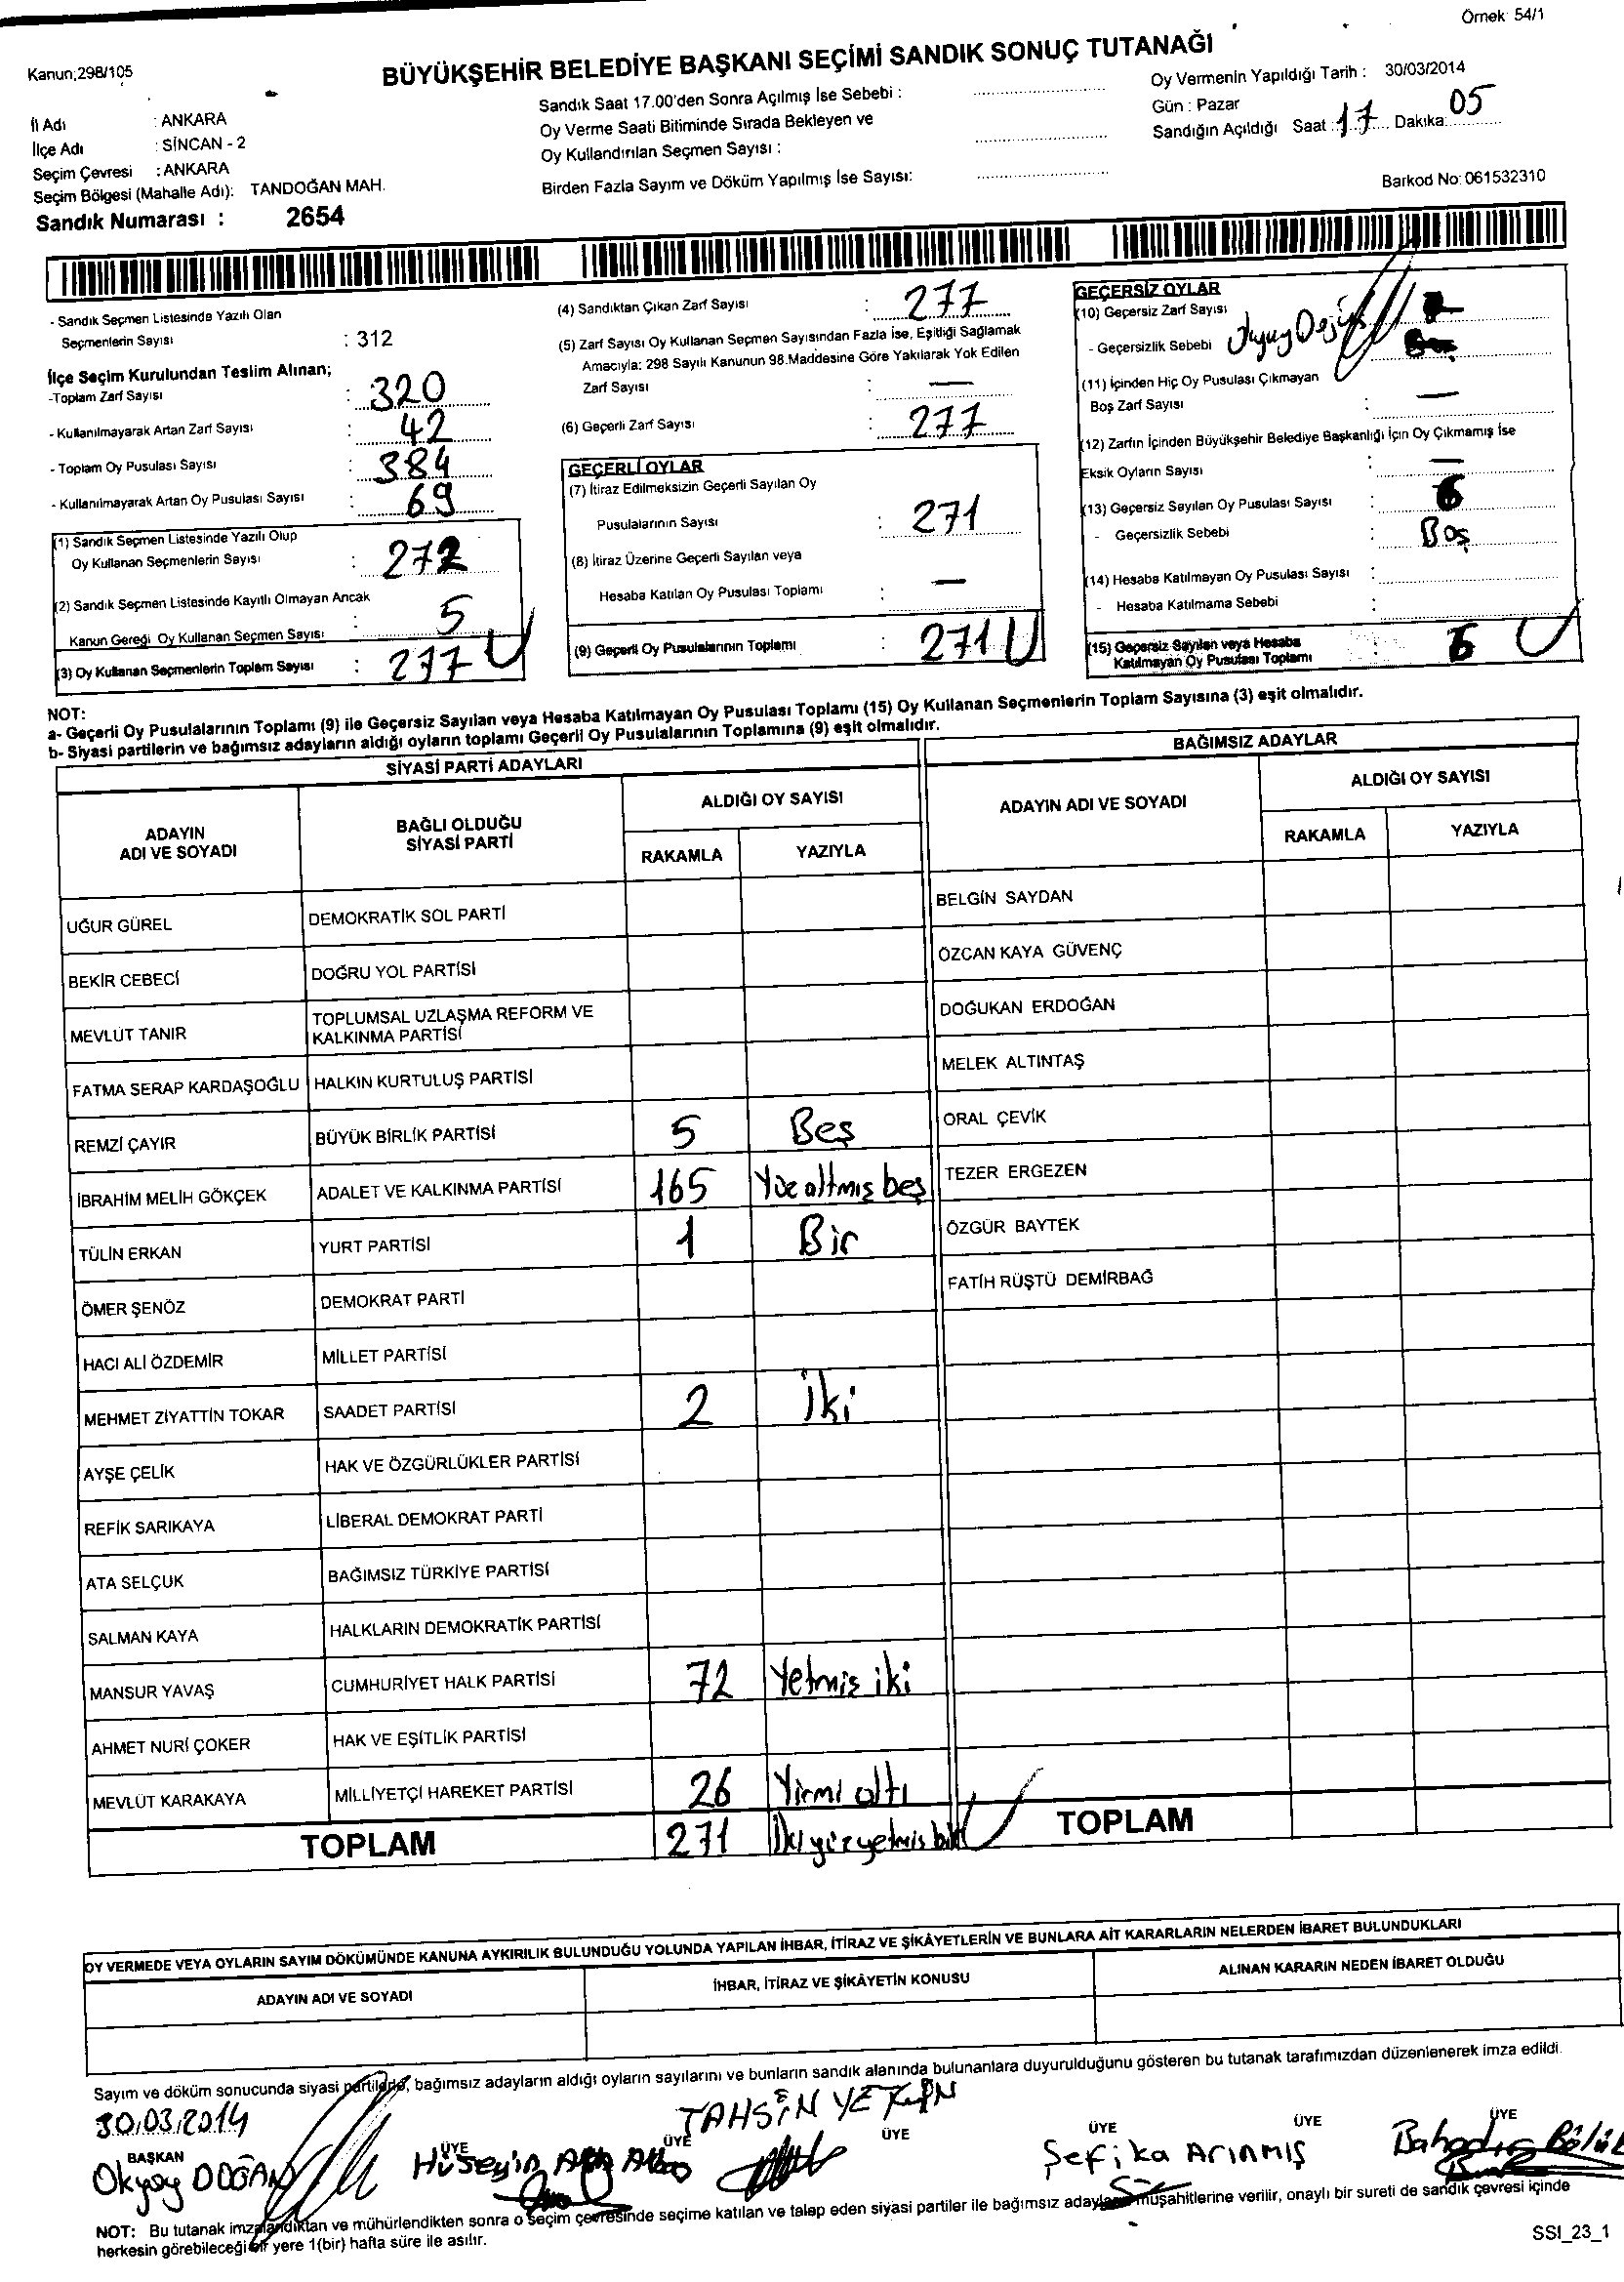 Örnek 54/1
Kanun;298/105
BÜYÜKŞEHİR BELEDİYE BAŞKANI SEÇİMİ SANDIK SONUÇ TUTANAĞI
İl Adı : ANKARA
İlçe Adı : SİNCAN - 2
Seçim Çevresi : ANKARA
Seçim Bölgesi (Mahalle Adı): TANDOĞAN MAH.
Sandık Numarası : 2654
Sandık Saat 17.00'den Sonra Açılmış İse Sebebi :
Oy Verme Saati Bitiminde Sırada Bekleyen ve
Oy Kullandırılan Seçmen Sayısı :
Birden Fazla Sayım ve Döküm Yapılmış İse Sayısı:
Oy Vermenin Yapıldığı Tarih : 30/03/2014
Gün : Pazar
Sandığın Açıldığı Saat : 17 Dakika: 05
Barkod No: 061532310
- Sandık Seçmen Listesinde Yazılı Olan
Seçmenlerin Sayısı : 312
İlçe Seçim Kurulundan Teslim Alınan;
-Toplam Zarf Sayısı : 320
- Kullanılmayarak Artan Zarf Sayısı : 42
- Toplam Oy Pusulası Sayısı : 384
- Kullanılmayarak Artan Oy Pusulası Sayısı : 69
(1) Sandık Seçmen Listesinde Yazılı Olup
Oy Kullanan Seçmenlerin Sayısı : 272
(2) Sandık Seçmen Listesinde Kayıtlı Olmayan Ancak
Kanun Gereği Oy Kullanan Seçmen Sayısı : 5
(3) Oy Kullanan Seçmenlerin Toplam Sayısı : 277
(4) Sandıktan Çıkan Zarf Sayısı : 277
(5) Zarf Sayısı Oy Kullanan Seçmen Sayısından Fazla İse, Eşitliği Sağlamak
Amacıyla: 298 Sayılı Kanunun 98.Maddesine Göre Yakılarak Yok Edilen
Zarf Sayısı : —
(6) Geçerli Zarf Sayısı : 277
GEÇERLİ OYLAR
(7) İtiraz Edilmeksizin Geçerli Sayılan Oy
Pusulalarının Sayısı : 271
(8) İtiraz Üzerine Geçerli Sayılan veya
Hesaba Katılan Oy Pusulası Toplamı : —
(9) Geçerli Oy Pusulalarının Toplamı : 271
GEÇERSİZ OYLAR
(10) Geçersiz Zarf Sayısı
- Geçersizlik Sebebi
(11) İçinden Hiç Oy Pusulası Çıkmayan
Boş Zarf Sayısı : —
(12) Zarfın İçinden Büyükşehir Belediye Başkanlığı İçin Oy Çıkmamış İse
Eksik Oyların Sayısı : —
(13) Geçersiz Sayılan Oy Pusulası Sayısı : 6
- Geçersizlik Sebebi : Boş
(14) Hesaba Katılmayan Oy Pusulası Sayısı :
- Hesaba Katılmama Sebebi :
(15) Geçersiz Sayılan veya Hesaba
Katılmayan Oy Pusulası Toplamı : 6
NOT:
a- Geçerli Oy Pusulalarının Toplamı (9) ile Geçersiz Sayılan veya Hesaba Katılmayan Oy Pusulası Toplamı (15) Oy Kullanan Seçmenlerin Toplam Sayısına (3) eşit olmalıdır.
b- Siyasi partilerin ve bağımsız adayların aldığı oyların toplamı Geçerli Oy Pusulalarının Toplamına (9) eşit olmalıdır.
SİYASİ PARTİ ADAYLARI
ADAYIN ADI VE SOYADI BAĞLI OLDUĞU SİYASİ PARTİ ALDIĞI OY SAYISI
RAKAMLA YAZIYLA
UĞUR GÜREL DEMOKRATİK SOL PARTİ
BEKİR CEBECİ DOĞRU YOL PARTİSİ
MEVLÜT TANIR TOPLUMSAL UZLAŞMA REFORM VE KALKINMA PARTİSİ
FATMA SERAP KARDAŞOĞLU HALKIN KURTULUŞ PARTİSİ
REMZİ ÇAYIR BÜYÜK BİRLİK PARTİSİ 5 Beş
İBRAHİM MELİH GÖKÇEK ADALET VE KALKINMA PARTİSİ 165 Yüz altmış beş
TÜLİN ERKAN YURT PARTİSİ 1 Bir
ÖMER ŞENÖZ DEMOKRAT PARTİ
HACI ALİ ÖZDEMİR MİLLET PARTİSİ
MEHMET ZİYATTİN TOKAR SAADET PARTİSİ 2 İki
AYŞE ÇELİK HAK VE ÖZGÜRLÜKLER PARTİSİ
REFİK SARIKAYA LİBERAL DEMOKRAT PARTİ
ATA SELÇUK BAĞIMSIZ TÜRKİYE PARTİSİ
SALMAN KAYA HALKLARIN DEMOKRATİK PARTİSİ
MANSUR YAVAŞ CUMHURİYET HALK PARTİSİ 72 Yetmiş iki
AHMET NURİ ÇOKER HAK VE EŞİTLİK PARTİSİ
MEVLÜT KARAKAYA MİLLİYETÇİ HAREKET PARTİSİ 26 Yirmi altı
TOPLAM 271 İkiyüzyetmişbir
BAĞIMSIZ ADAYLAR
ADAYIN ADI VE SOYADI ALDIĞI OY SAYISI
RAKAMLA YAZIYLA
BELGİN SAYDAN
ÖZCAN KAYA GÜVENÇ
DOĞUKAN ERDOĞAN
MELEK ALTINTAŞ
ORAL ÇEVİK
TEZER ERGEZEN
ÖZGÜR BAYTEK
FATİH RÜŞTÜ DEMİRBAĞ
TOPLAM
OY VERMEDE VEYA OYLARIN SAYIM DÖKÜMÜNDE KANUNA AYKIRILIK BULUNDUĞU YOLUNDA YAPILAN İHBAR, İTİRAZ VE ŞİKÂYETLERİN VE BUNLARA AİT KARARLARIN NELERDEN İBARET BULUNDUKLARI
ADAYIN ADI VE SOYADI İHBAR, İTİRAZ VE ŞİKÂYETİN KONUSU ALINAN KARARIN NEDEN İBARET OLDUĞU
Sayım ve döküm sonucunda siyasi partilerin, bağımsız adayların aldığı oyların sayılarını ve bunların sandık alanında bulunanlara duyurulduğunu gösteren bu tutanak tarafımızdan düzenlenerek imza edildi.
30.03.2014 TAHSİN
BAŞKAN ÜYE ÜYE ÜYE ÜYE ÜYE ÜYE
Okyay DOĞAN Hüseyin Şefika Arınmış
NOT: Bu tutanak imzalandıktan ve mühürlendikten sonra o seçim çevresinde seçime katılan ve talep eden siyasi partiler ile bağımsız adayların müşahitlerine verilir, onaylı bir sureti de sandık çevresi içinde
herkesin görebileceği bir yere 1(bir) hafta süre ile asılır.
SSI_23_1